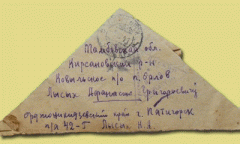 Тамбовская обл.
Кирсановский р-н
Ковыльское п/о
Лысых Афанасию Григорьевичу
Орджоникидзевский край г. Пятигорск
п/я 42-5 Лысых